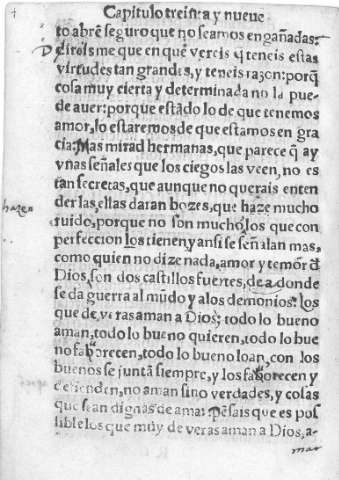 Capitulo treinta y nueve
to abrẽ seguro que no seamos engañadas.
Direis me que en que vereis q̃ teneis estas
virtudes tan grandes, y teneis razon: porq̃
cosa muy cierta y determinada no la pue-
de auer: porque estãdo lo de que tenemos
amor, lo estaremos de que estamos en gra
cia. Mas mirad hermanas, que parece q̃ ay
vnas señales que los ciegos las veen, no es
tan secretas, que aunque no querais enten
der las, ellas daran bozes, que hazẽ mucho
hazen
ruido, porque no son mucho, los que con
perfeccion los tienen, y ansi se señalan mas,
como quien no dize nada, amor y temor đ
Dios, son dos castillos fuertes, de a donde
se da guerra al mũdo y a los demonios. Los
que de veras aman a Dios, todo lo bueno
aman, todo lo bueno quieren, todo lo bue
no fauorecen, todo lo bueno loan, con los
buenos se juntã siempre, y los fauorecen y
defienden, no aman sino verdades, y cosas
que sean dignas de amar. Pẽsais que es pos
sible los que muy de veras aman a Dios, a-
mar